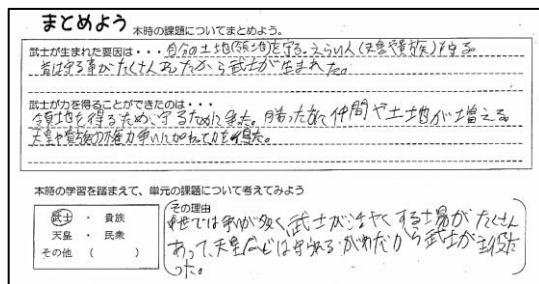 まとめよう 本時の課題についてまとめよう。
武士が生まれた要因は・・・自分の土地(領地)を守る。えらい人(天皇や貴族)を守る
昔は守る事がたくさんあったから武士が生まれた。
武士が力を得ることができたのは・・・
領地を得るため、守るために争った。勝った方に仲間や土地が増える
天皇や貴族の権力争いに加わって力を得た。
本時の学習を踏まえて、単元の課題について考えてみよう
武士 ・ 貴族
天皇 ・ 民衆
その他 ( )
その理由
中世では争いが多く、武士がかつやくする場がたくさん
あって、天皇などは守られるがわだから武士が主役だ
った。